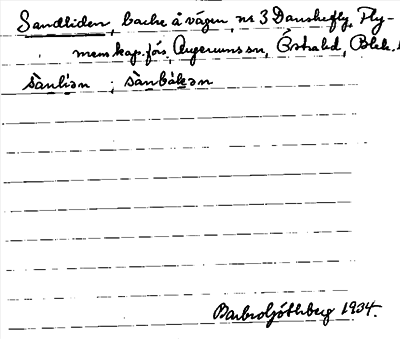 Sandliden, backe å vägen, nr 3 Danskefly, Fly-
mens kap.förs, Augerums sn, Östra hd, Blek.
sànliən ; sànbàkən
Barbro Ljóthberg 1934.